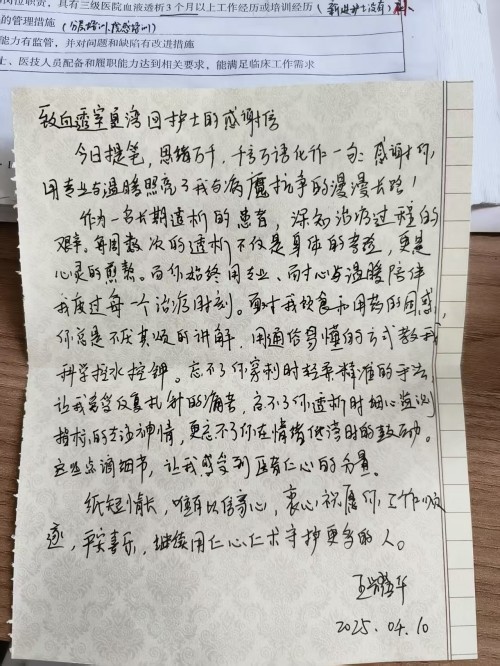 岗位职责，具有三级医院血液透析3个月以上工作经历或培训经历（新进护士没有）
的管理措施（分层培训、院感培训）
能力有监管，并对问题和缺陷有改进措施
七、医技人员配备和履职能力达到相关要求，能满足临床工作需求
致血透室夏湾回护士的感谢信
今日提笔，思绪万千，千言万语化作一句：感谢你，
用专业与温暖照亮了我与病魔抗争的漫漫长路！
作为一名长期透析的患者，深知治疗过程的
艰辛。每周数次的透析不仅是身体的考验，更是
心灵的煎熬。而你始终用专业、耐心与温暖陪伴
我度过每一个治疗时刻。面对我饮食和用药的困惑，
你总是不厌其烦的讲解，用通俗易懂的方式教我
科学控水控钾。忘不了你穿刺时轻柔精准的手法，
让我免受反复扎针的痛苦，忘不了你透析时细心监测
指标的专注神情，更忘不了你在情绪低落时的鼓励。
这些点滴细节，让我感受到医者仁心的分量。
纸短情长，唯有以信寄心，衷心祝愿你工作顺
遂，平安喜乐，继续用仁心仁术守护更多的人。
王耀华
2025.04.10